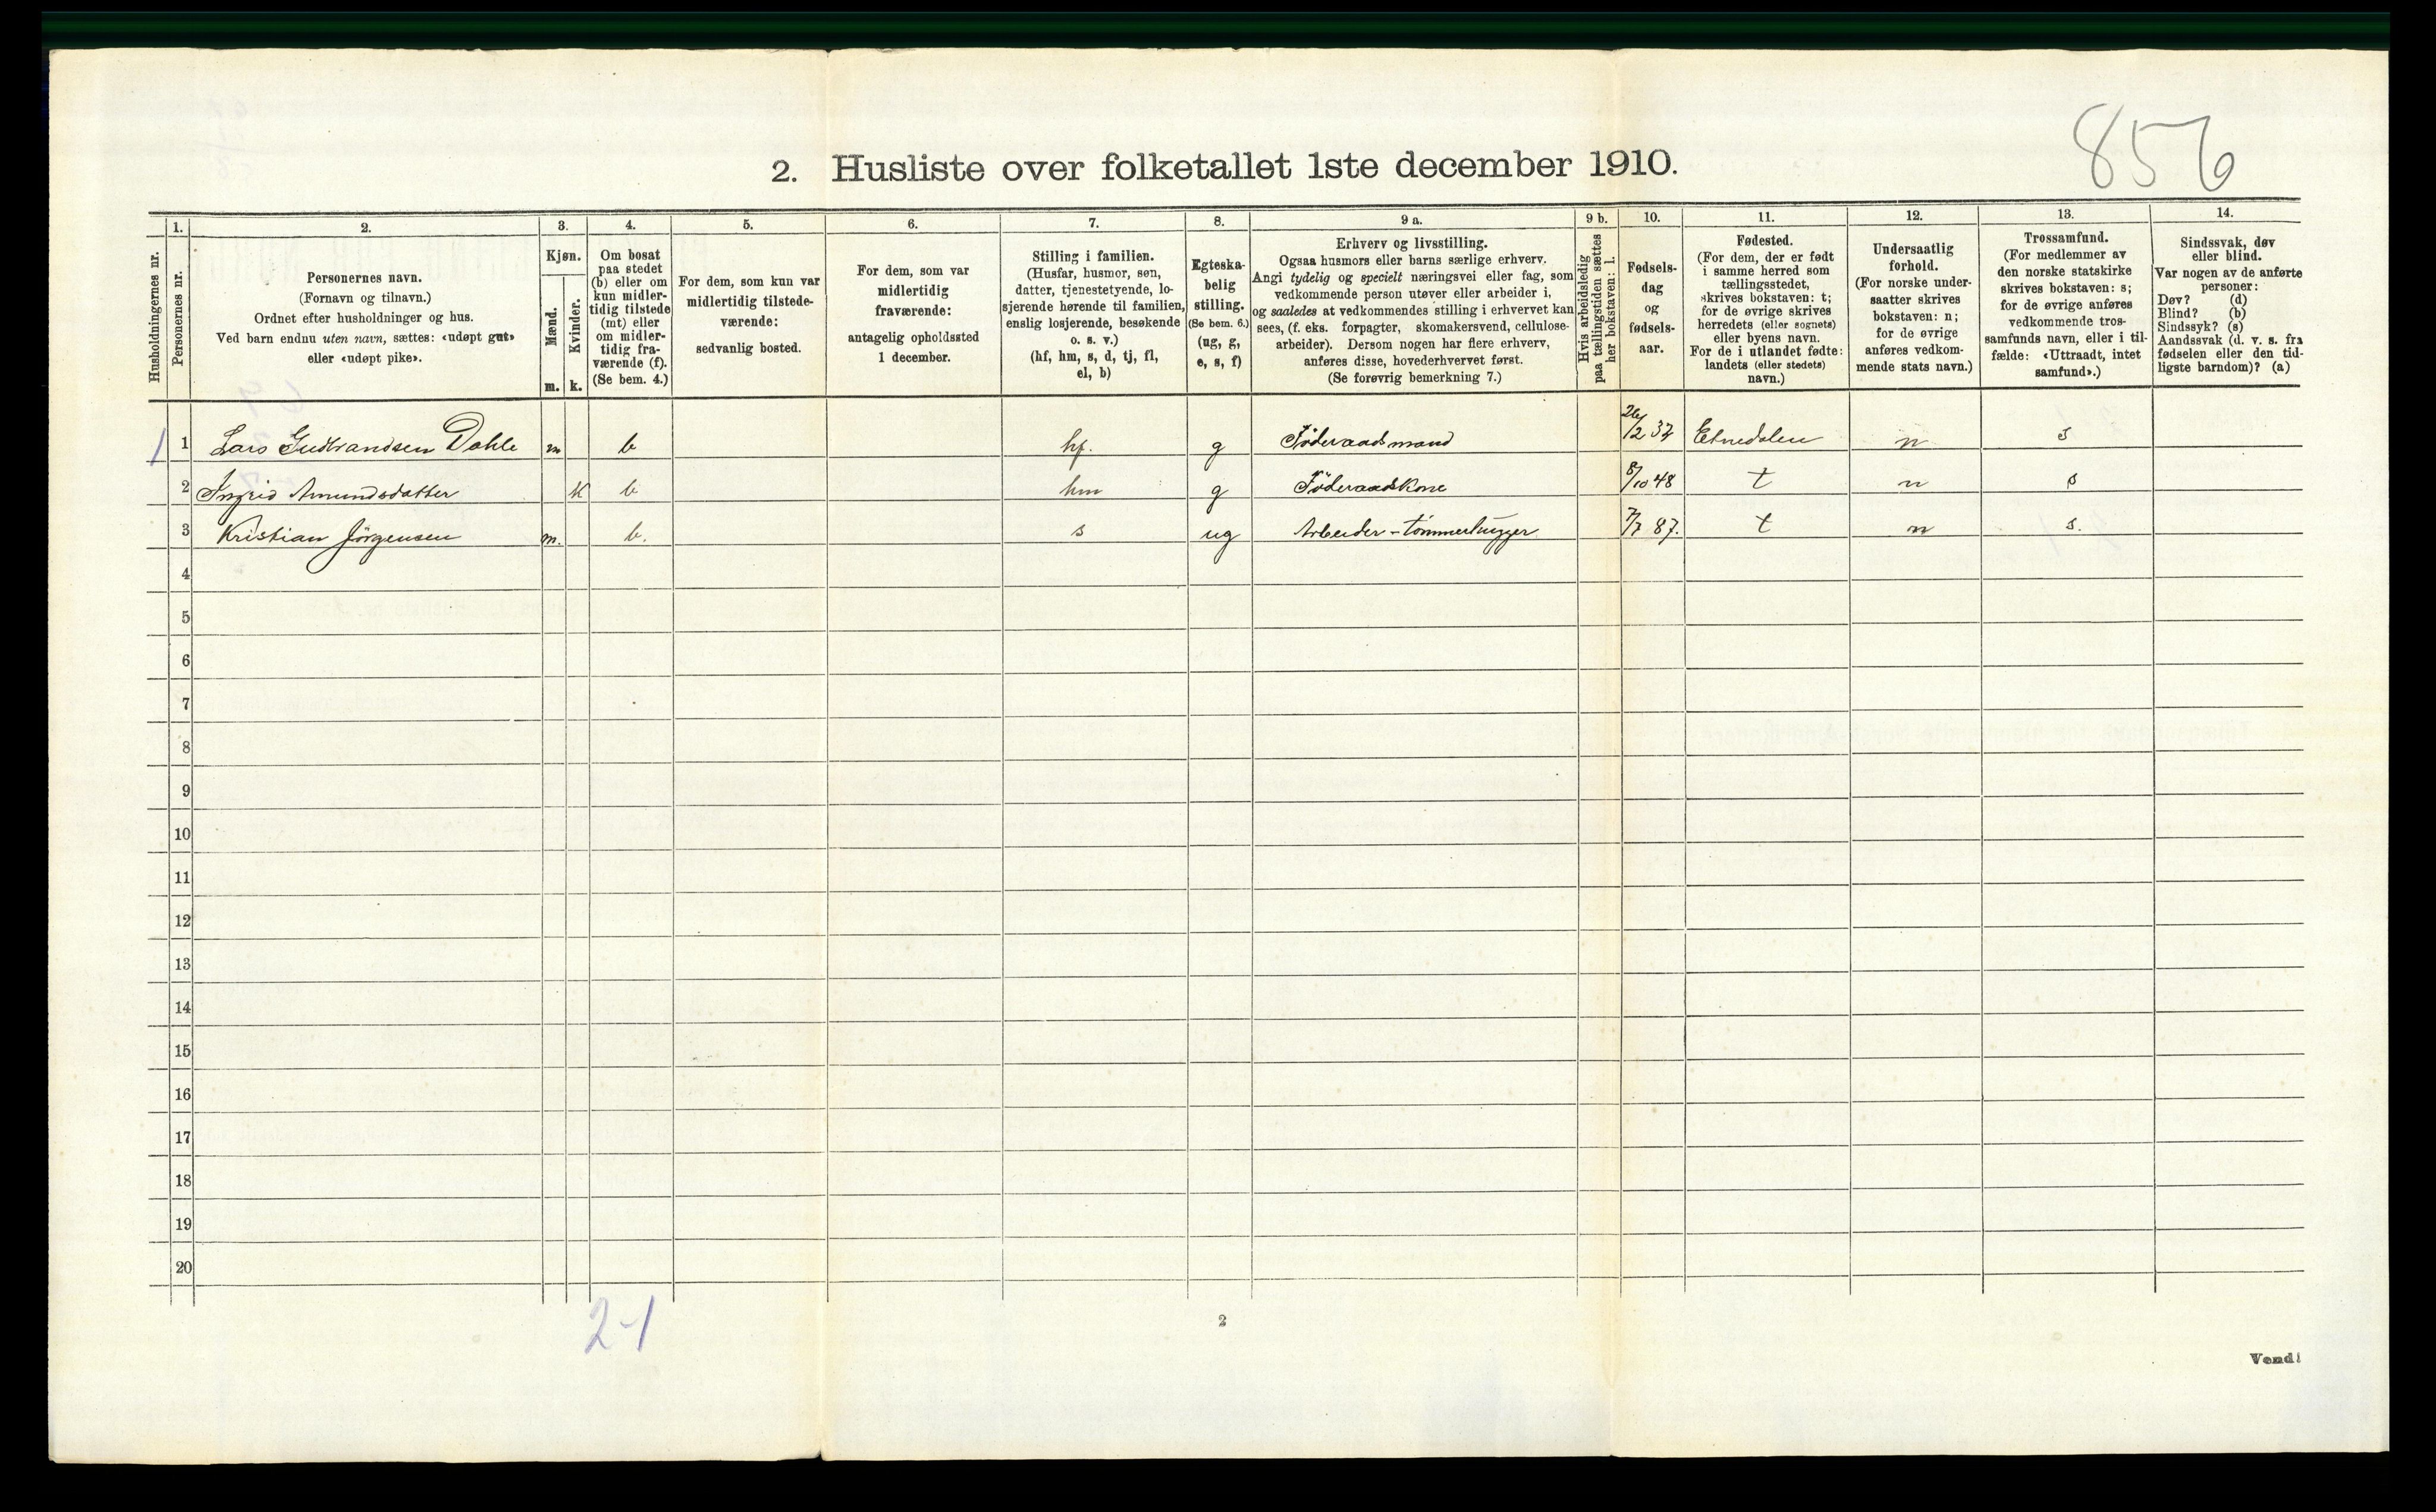 856
2. Husliste over folketallet 1ste december 1910.
Husholdningernes nr.
1.
Personernes nr.
2.
Personernes navn.
(Fornavn og tilnavn.)
Ordnet efter husholdninger og hus.
Ved barn endnu uten navn, sættes: «udøpt gut»
eller «udøpt pike».
3.
Kjøn.
Mænd.
m.
Kvinder.
k.
4.
Om bosat
paa stedet
(b) eller om
kun midler-
tidig tilstede
(mt) eller
om midler-
tidig fra-
værende (f).
(Se bem. 4.)
5.
For dem, som kun var
midlertidig tilstede-
værende:
sedvanlig bosted.
6.
For dem, som var
midlertidig
fraværende:
antagelig opholdssted
1 december.
7.
Stilling i familien.
(Husfar, husmor, søn,
datter, tjenestetyende, lo-
sjerende hørende til familien,
enslig losjerende, besøkende
o. s. v.)
(hf, hm, s, d, tj, fl,
el, b)
8.
Egteska-
belig
stilling.
(Se bem. 6.)
(ug, g,
e, s, f)
9 a.
Erhverv og livsstilling.
Ogsaa husmors eller barns særlige erhverv.
Angi tydelig og specielt næringsvei eller fag, som
vedkommende person utøver eller arbeider i,
og saaledes at vedkommendes stilling i erhvervet kan
sees, (f. eks. forpagter, skomakersvend, cellulose-
arbeider). Dersom nogen har flere erhverv,
anføres disse, hovederhvervet først.
(Se forøvrig bemerkning 7.)
9 b.
Hvis arbeidsledig
paa tællingstiden sættes
her bokstaven: l.
10.
Fødsels-
dag
og
fødsels-
aar.
11.
Fødested.
(For dem, der er født
i samme herred som
tællingsstedet,
skrives bokstaven: t;
for de øvrige skrives
herredets (eller sognets)
eller byens navn.
For de i utlandet fødte:
landets (eller stedets)
navn.)
12.
Undersaatlig
forhold.
(For norske under-
saatter skrives
bokstaven: n;
for de øvrige
anføres vedkom-
mende stats navn.)
13.
Trossamfund.
(For medlemmer av
den norske statskirke
skrives bokstaven: s;
for de øvrige anføres
vedkommende tros-
samfunds navn, eller i til-
fælde: «Uttraadt, intet
samfund».)
14.
Sindssvak, døv
eller blind.
Var nogen av de anførte
personer:
Døv? (d)
Blind? (b)
Sindssyk? (s)
Aandssvak (d. v. s. fra
fødselen eller den tid-
ligste barndom)? (a)
1 1 Lars Gudbrandsen Dahle m b hf. g Föderaadsmand 26/2 37 Etnedalen n s
2 Ingrid Amundsdatter k b hm g Föderaadskone 8/10 48 t n s
3 Kristian Jörgensen m. b. s ug Arbeider - tömmerhugger 7/7 87. t n s.
4
5
6
7
8
9
10
11
12
13
14
15
16
17
18
19
20
2-1
2
Vend!